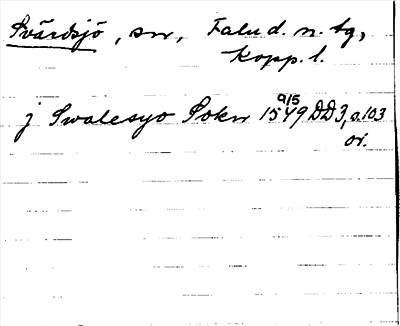 Svärdsjö, sn, Falu d. n. tg,
Kopp. l.
j Swalesyo Sokn 1549 9/5 DD3, s. 103
or.